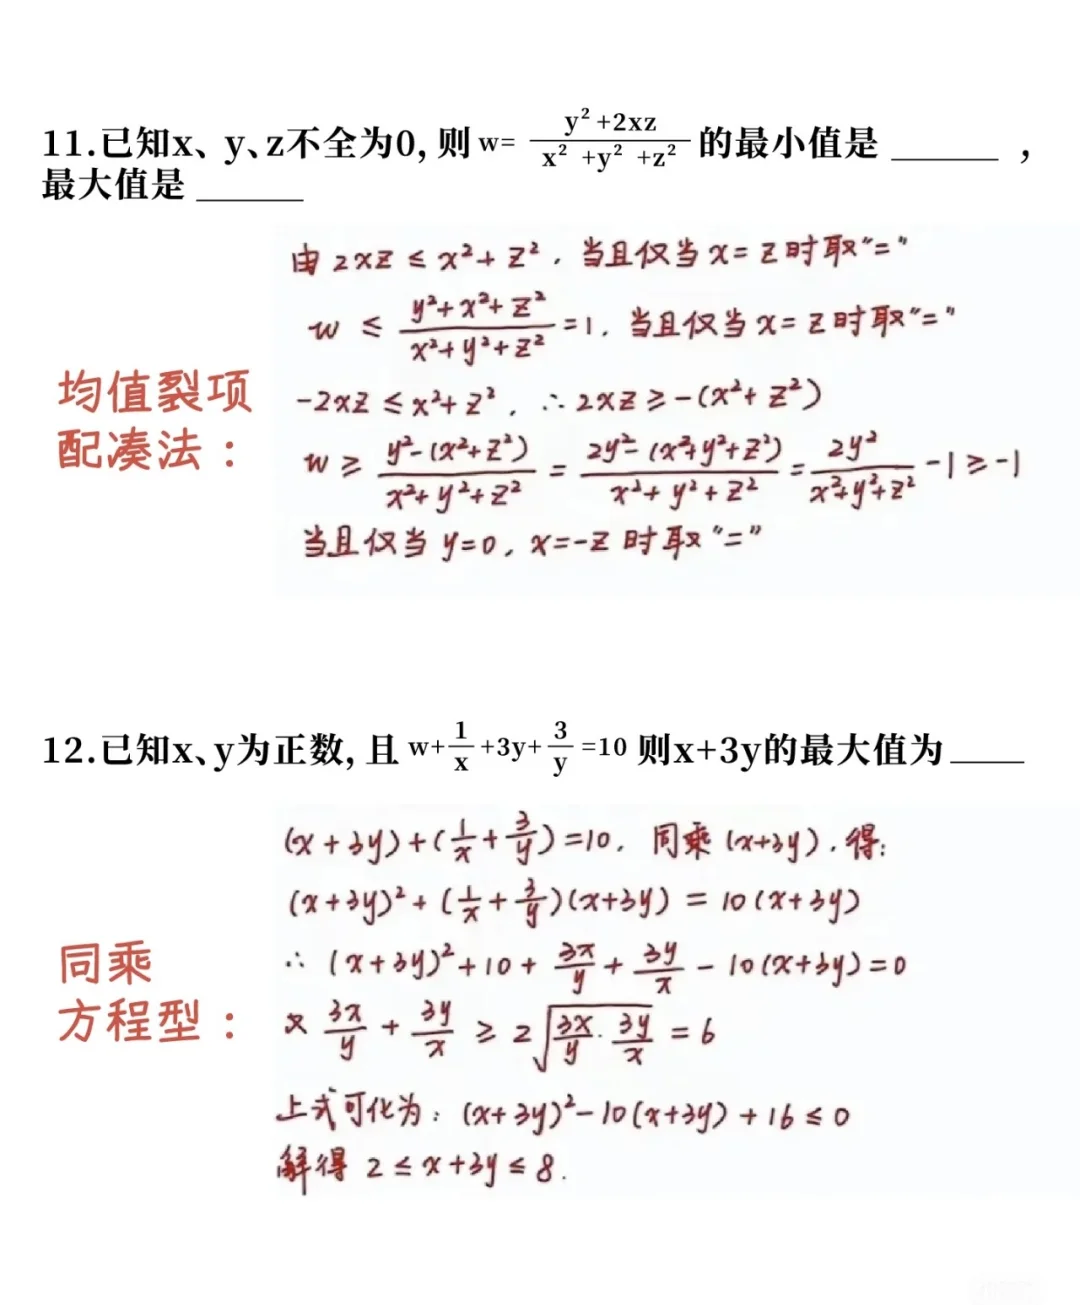 11.已知x、y、z不全为0, 则 w= y²+2xz / x²+y²+z² 的最小值是 ______ ,
最大值是 ______
由 2xz ≤ x²+z², 当且仅当 x=z 时取"="
w ≤ y²+x²+z² / x²+y²+z² =1, 当且仅当 x=z 时取"="
均值裂项
配凑法：
-2xz ≤ x²+z², ∴ 2xz ≥ -(x²+z²)
w ≥ y²-(x²+z²) / x²+y²+z² = 2y²-(x²+y²+z²) / x²+y²+z² = 2y² / x²+y²+z² -1 ≥ -1
当且仅当 y=0, x=-z 时取"="
12.已知x、y为正数, 且 w+1/x+3y+3/y=10 则x+3y的最大值为____
(x+3y)+(1/x+3/y)=10, 同乘(x+3y), 得:
(x+3y)²+(1/x+3/y)(x+3y) = 10(x+3y)
同乘
方程型：
∴ (x+3y)²+10+3x/y+3y/x-10(x+3y)=0
又 3x/y + 3y/x ≥ 2√(3x/y·3y/x) = 6
上式可化为: (x+3y)²-10(x+3y)+16≤0
解得 2≤x+3y≤8.